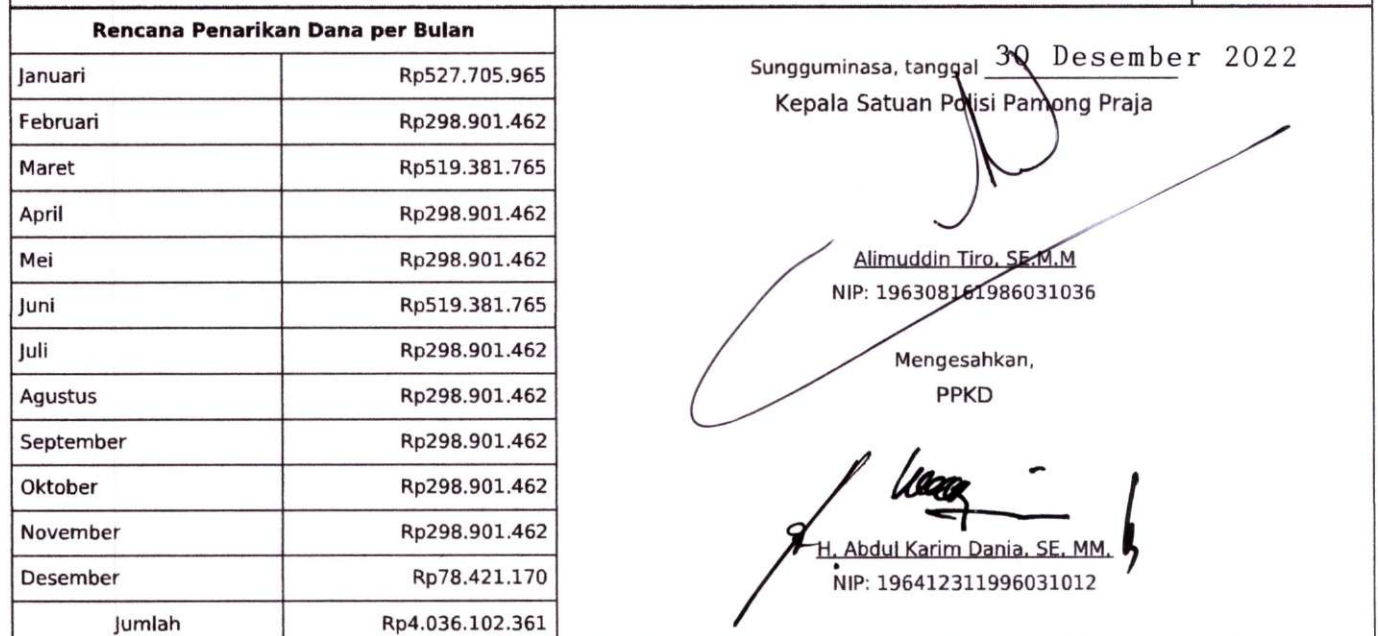 Rencana Penarikan Dana per Bulan
Januari Rp527.705.965
Februari Rp298.901.462
Maret Rp519.381.765
April Rp298.901.462
Mei Rp298.901.462
Juni Rp519.381.765
Juli Rp298.901.462
Agustus Rp298.901.462
September Rp298.901.462
Oktober Rp298.901.462
November Rp298.901.462
Desember Rp78.421.170
Jumlah Rp4.036.102.361
Sungguminasa, tanggal 30 Desember 2022
Kepala Satuan Polisi Pamong Praja
Alimuddin Tiro, SE.M.M
NIP: 196308161986031036
Mengesahkan,
PPKD
H. Abdul Karim Dania, SE, MM.
NIP: 196412311996031012